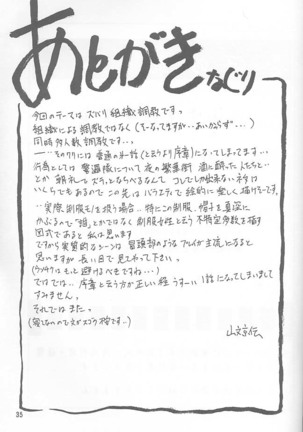 あとがき なぐり
今回のテーマは ズバリ 組織調教です。
組織による調教ではなく (そーなってますが…あいかわらず…)
同時多人数調教です…。
…そのワリには 普通の第一話 (と言うより序章)になってしまってます…。
行為としては 警邏隊について 夜の繁華街 酒に酔った人たちと…
とか 朝礼で ズラっとならべるなんて コレでしか出来ないネタは
いくらでもあるので この先は バラエティで 絵的に 楽しく 描けそーです。
…実際 制服モノを扱う場合… 特にこの制服、帽子を真深に
かぶるので "娘"とかではなく 制服女性と言う 不特定多数を描す
図式であると 私は思います
ですから 実質的なシーンは 冒頭部のような プレイが主流になると
思いますが 長い目で見てやって下さい。
もっと 避けるべきですね…)
ではでは… 序章と言う方が正しい程 うすーい 1話になってしまいまして
すみません。
それではまた。
山文京伝
35